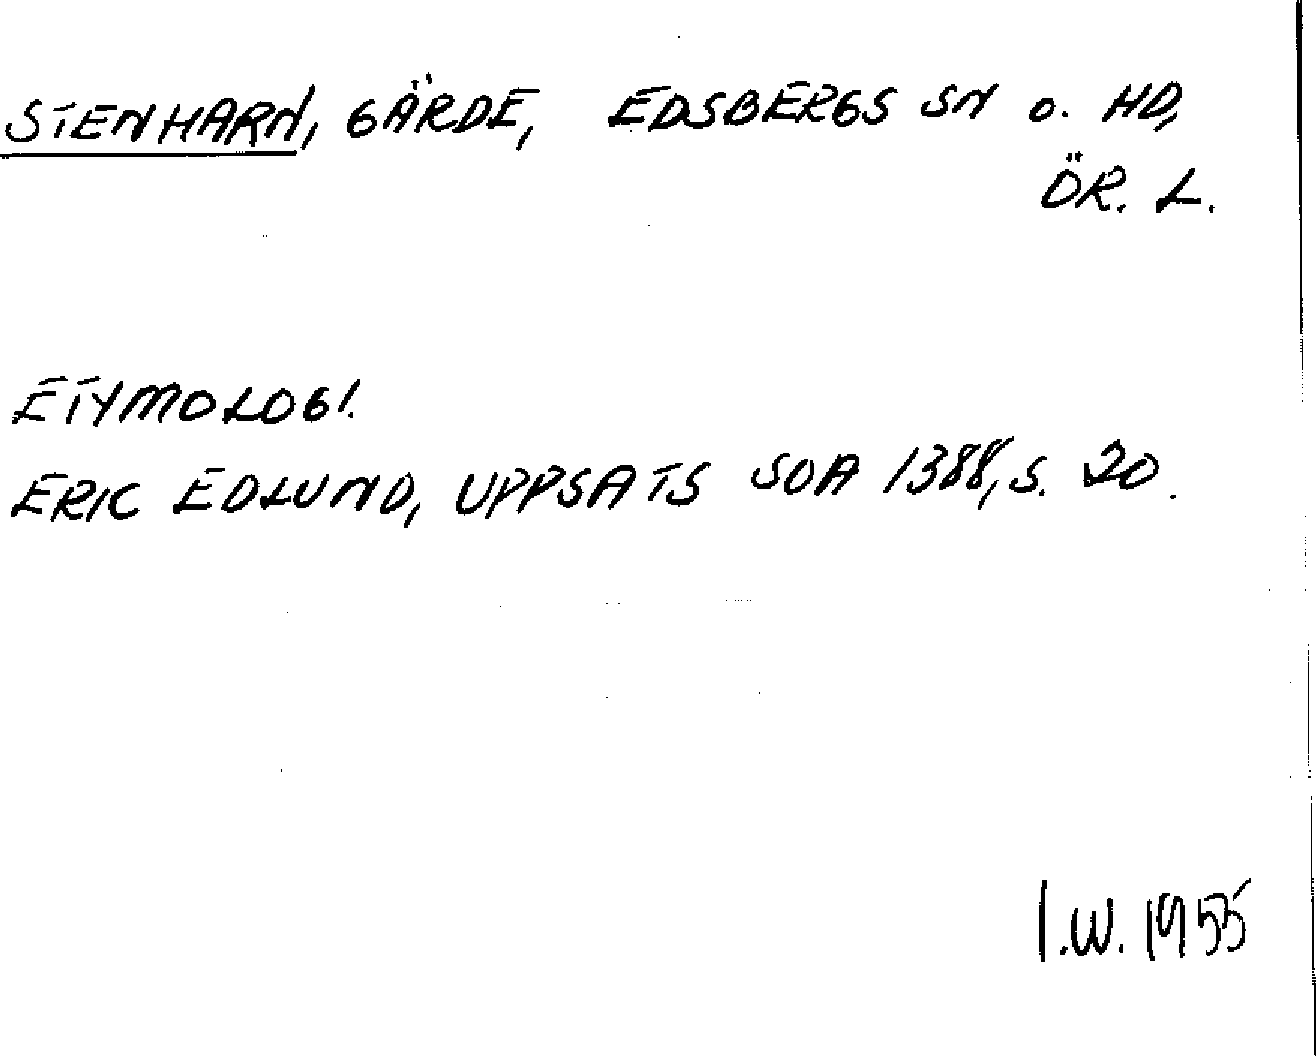 STENHARN, GÄRDE, EDSBERGS SN o. HD,
ÖR. L.
ETYMOLOGI.
ERIC EDLUND, UPPSATS SOA 1388, S. 20.
I.W. 1955